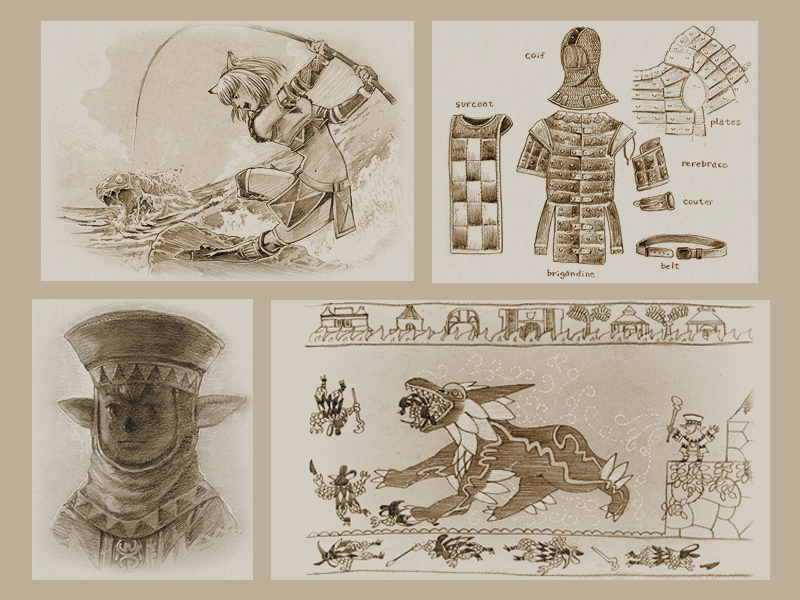 coif
surcoat
plates
rerebrace
couter
belt
brigandine